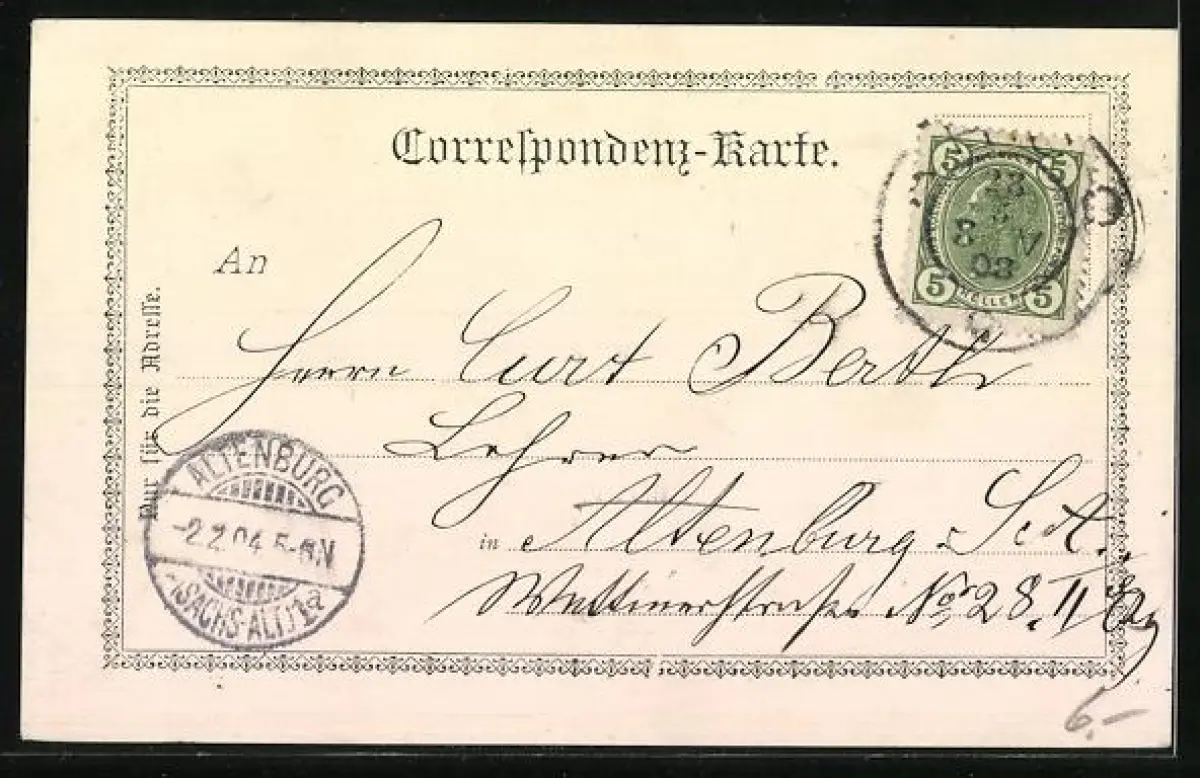 Correſpondenz-Karte.
An
Herrn Curt Barth
Lehrer
in Altenburg S.-A.
Wettinerstraße No. 28. II
Nur für die Adreſſe.
5 5
5 5
HELLER
23
8 V
03
ALTENBURG
-2.2.04.5-6.N
(SACHS-ALT.) 1a
6.-